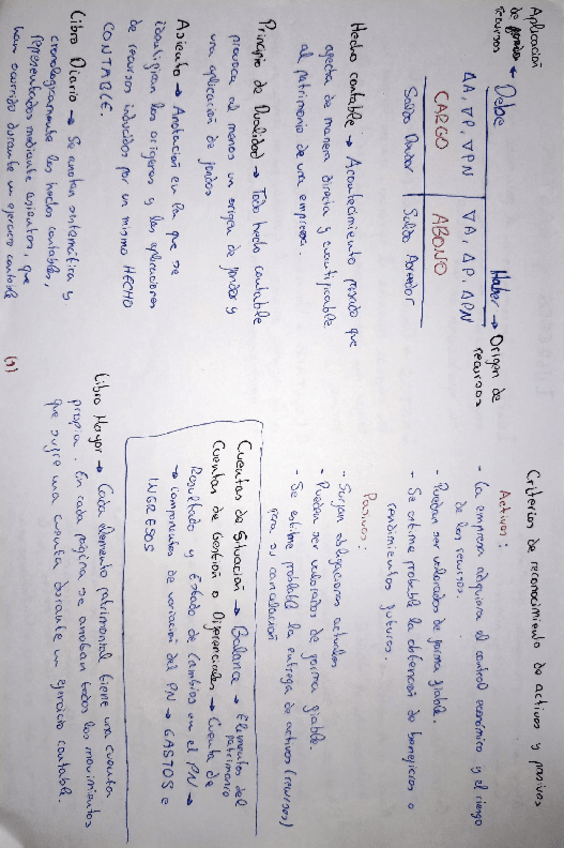 Aplicación de fondos ← Debe
recursos
Haber → Origen de recursos
∆A, ∇P, ∇PN | ∇A, ∆P, ∆PN
CARGO | ABONO
Saldo Deudor | Saldo Acreedor
Hecho contable → Acontecimiento pasado que
afecta de manera directa y cuantificable
al patrimonio de una empresa.
Principio de Dualidad → Todo hecho contable
provoca al menos un origen de fondos y
una aplicación de fondos
Asiento → Anotación en la que se
identifican los orígenes y las aplicaciones
de recursos inducidos por un mismo HECHO
CONTABLE.
Libro Diario → Se anotan sistemática y
cronológicamente los hechos contables,
representados mediante asientos, que
han ocurrido durante un ejercicio contable
(1)
Criterios de reconocimiento de activos y pasivos
Activos:
- La empresa adquiera el control económico y el riesgo
de los recursos.
- Puedan ser valorados de forma fiable.
- Se estime probable la obtención de beneficios o
rendimientos futuros.
Pasivos:
- Surjan obligaciones actuales
- Puedan ser valorados de forma fiable.
- Se estime probable la entrega de activos (recursos)
para su cancelación
Cuentas de Situación → Balance → Elementos del
patrimonio
Cuentas de Gestión o Diferenciales → Cuenta de
Resultado y Estado de Cambios en el PN →
→ Componentes de variación del PN → GASTOS e
INGRESOS
Libro Mayor → Cada elemento patrimonial tiene una cuenta
propia. En cada página se anotan todos los movimientos
que sufre una cuenta durante un ejercicio contable.